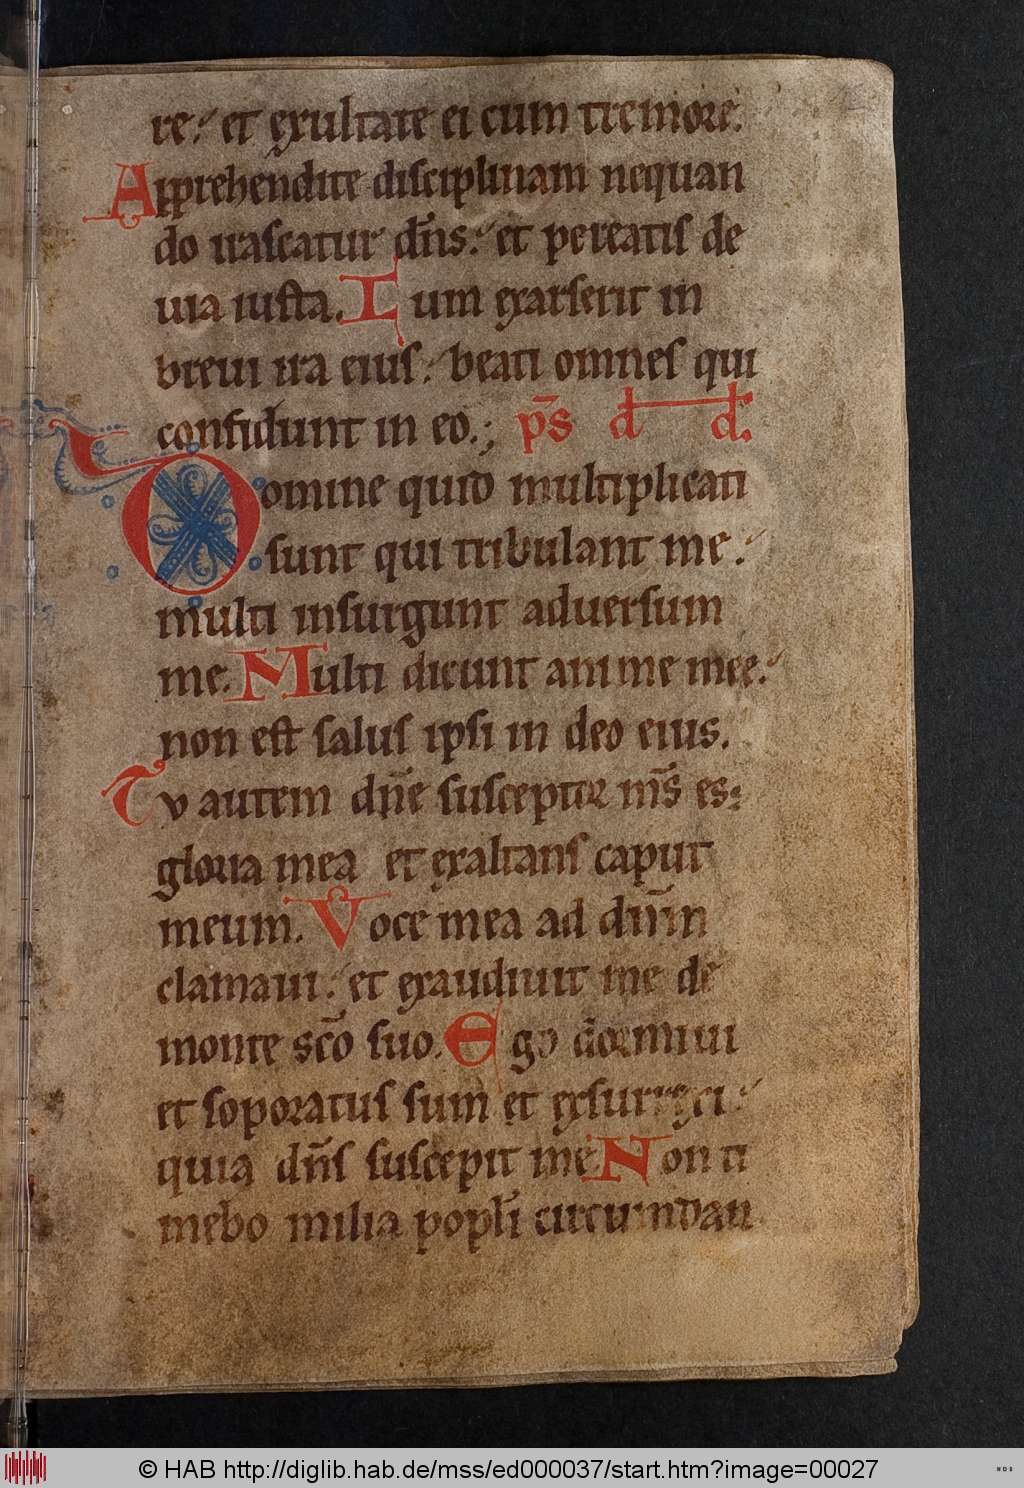 re. et exultate ei cum tremore.
Apprehendite disciplinam nequan
do irascatur dn̄s. et pereatis de
uia iusta. Cum exarserit in
breui ira eius. beati omnes qui
confidunt in eo. ps̄ d d.
Domine quid multiplicati
sunt qui tribulant me.
multi insurgunt aduersum
me. Multi dicunt anime mee.
non est salus ipsi in deo eius.
Tv autem dn̄e susceptor ms̄ es.
gloria mea et exaltans caput
meum. Voce mea ad dn̄m
clamaui. et exaudiuit me de
monte sc̄o suo. Ego dormiui
et soporatus sum et exsurrexi.
quia dn̄s suscepit me. Non ti
mebo milia popl̄i circumdan
© HAB http://diglib.hab.de/mss/ed000037/start.htm?image=00027